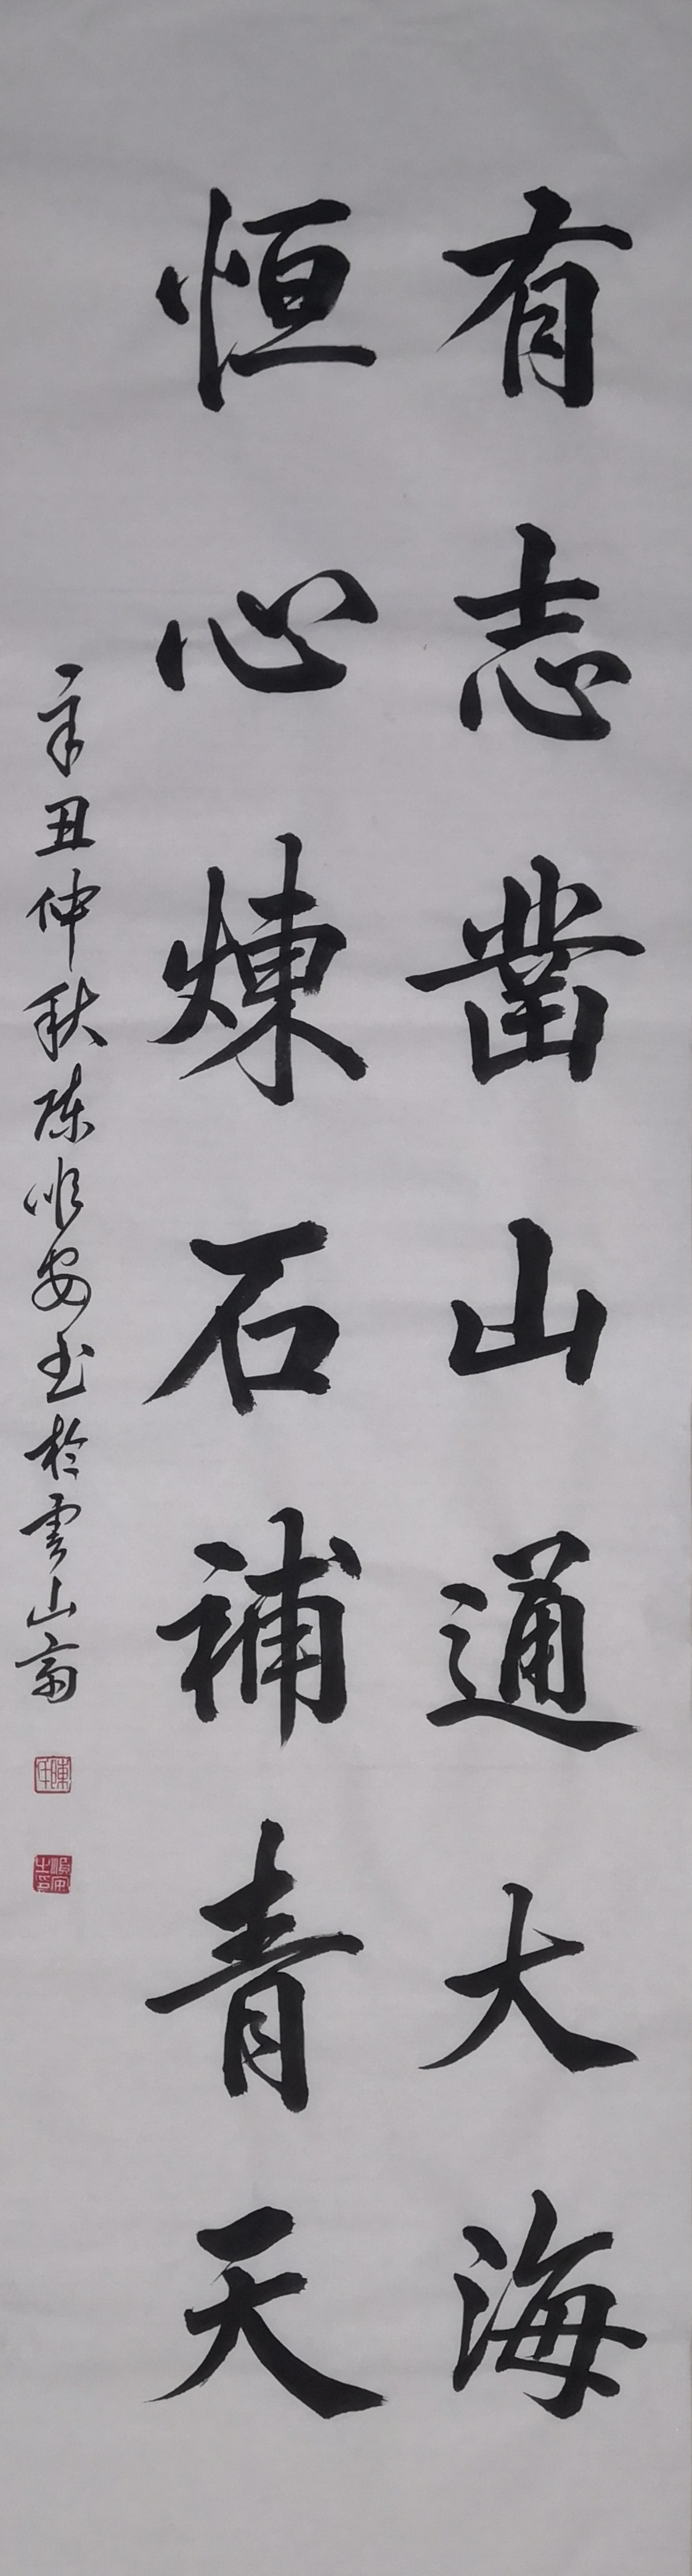 有志凿山通大海
恒心煉石補青天
辛丑仲秋陈顺安书於雲山斋
順安之印